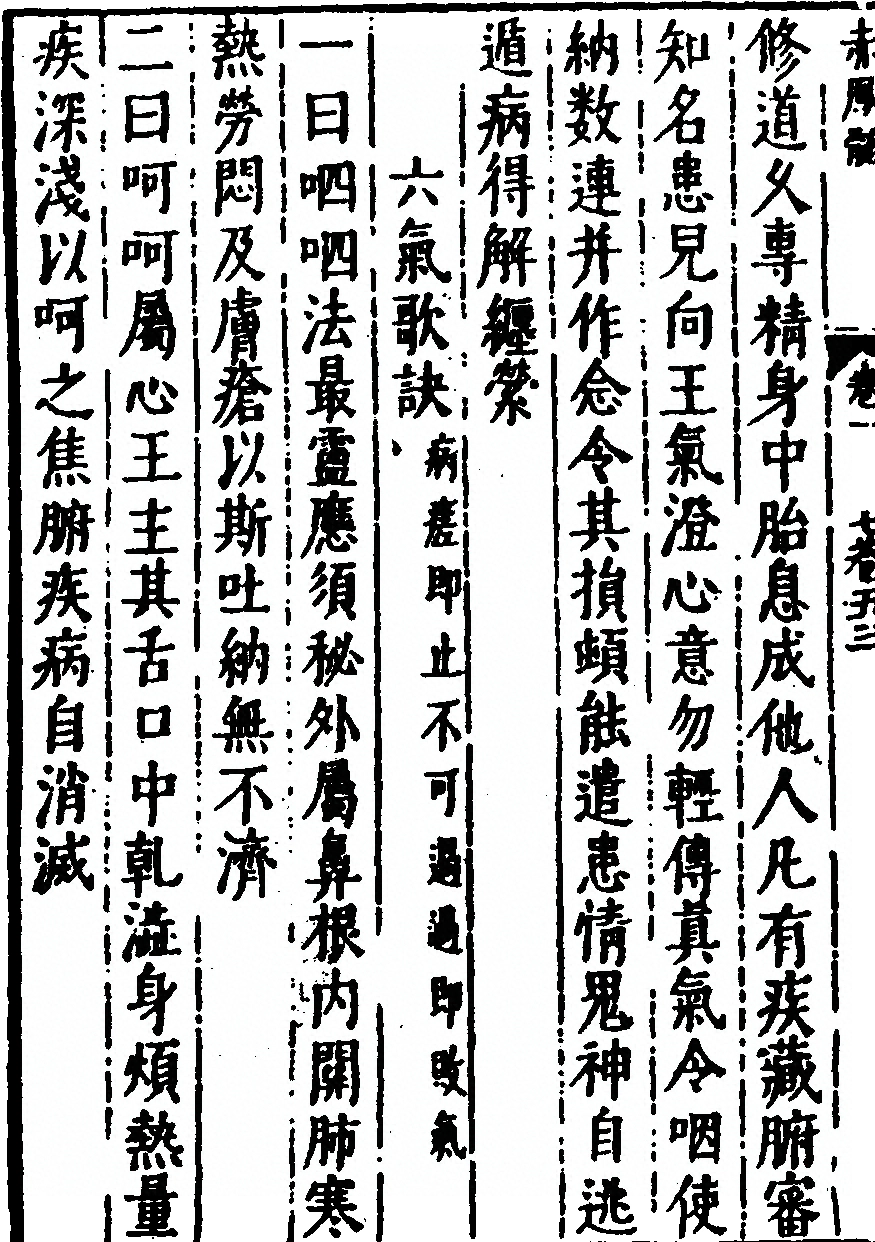 赤鳳髓 卷一 七卷五三
修道久專精身中胎息成他人凡有疾藏腑審
知名患兒向王氣澄心意勿輕傳真氣令咽使
納数連并作念令其損頓能遣患情鬼神自逃
遁病得解纏縈
六氣歌訣 病瘥即止不可過過即敗氣
一曰呬呬法最靈應須秘外屬鼻根內關肺寒
熱勞悶及膚瘡以斯吐納無不濟
二曰呵呵屬心王主其舌口中乹澁身煩熱量
疾深淺以呵之焦腑疾病自消滅